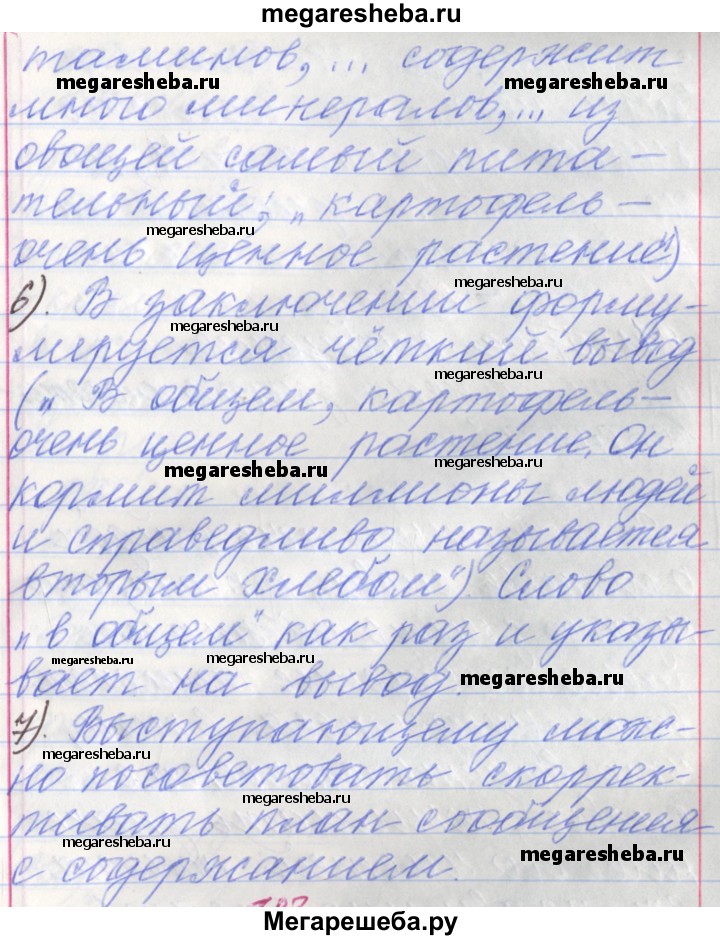 megaresheba.ru
таминов, ... содержит
megaresheba.ru megaresheba.ru
много минералов, ... из
овощей самый пита-
тельный; „картофель -
megaresheba.ru
очень ценное растение")
megaresheba.ru
6). В заключении форму-
megaresheba.ru
лируется чёткий вывод
megaresheba.ru
(„В общем, картофель -
очень ценное растение. Он
megaresheba.ru megaresheba.ru
кормит миллионы людей
и справедливо называется
вторым хлебом"). Слово
„в общем" как раз и указы-
megaresheba.ru megaresheba.ru
вает на вывод. megaresheba.ru
7). Выступающему мож-
megaresheba.ru
но посоветовать скоррек-
megaresheba.ru
тивать план сообщения
megaresheba.ru megaresheba.ru
с содержанием.
Мегарешеба.ру